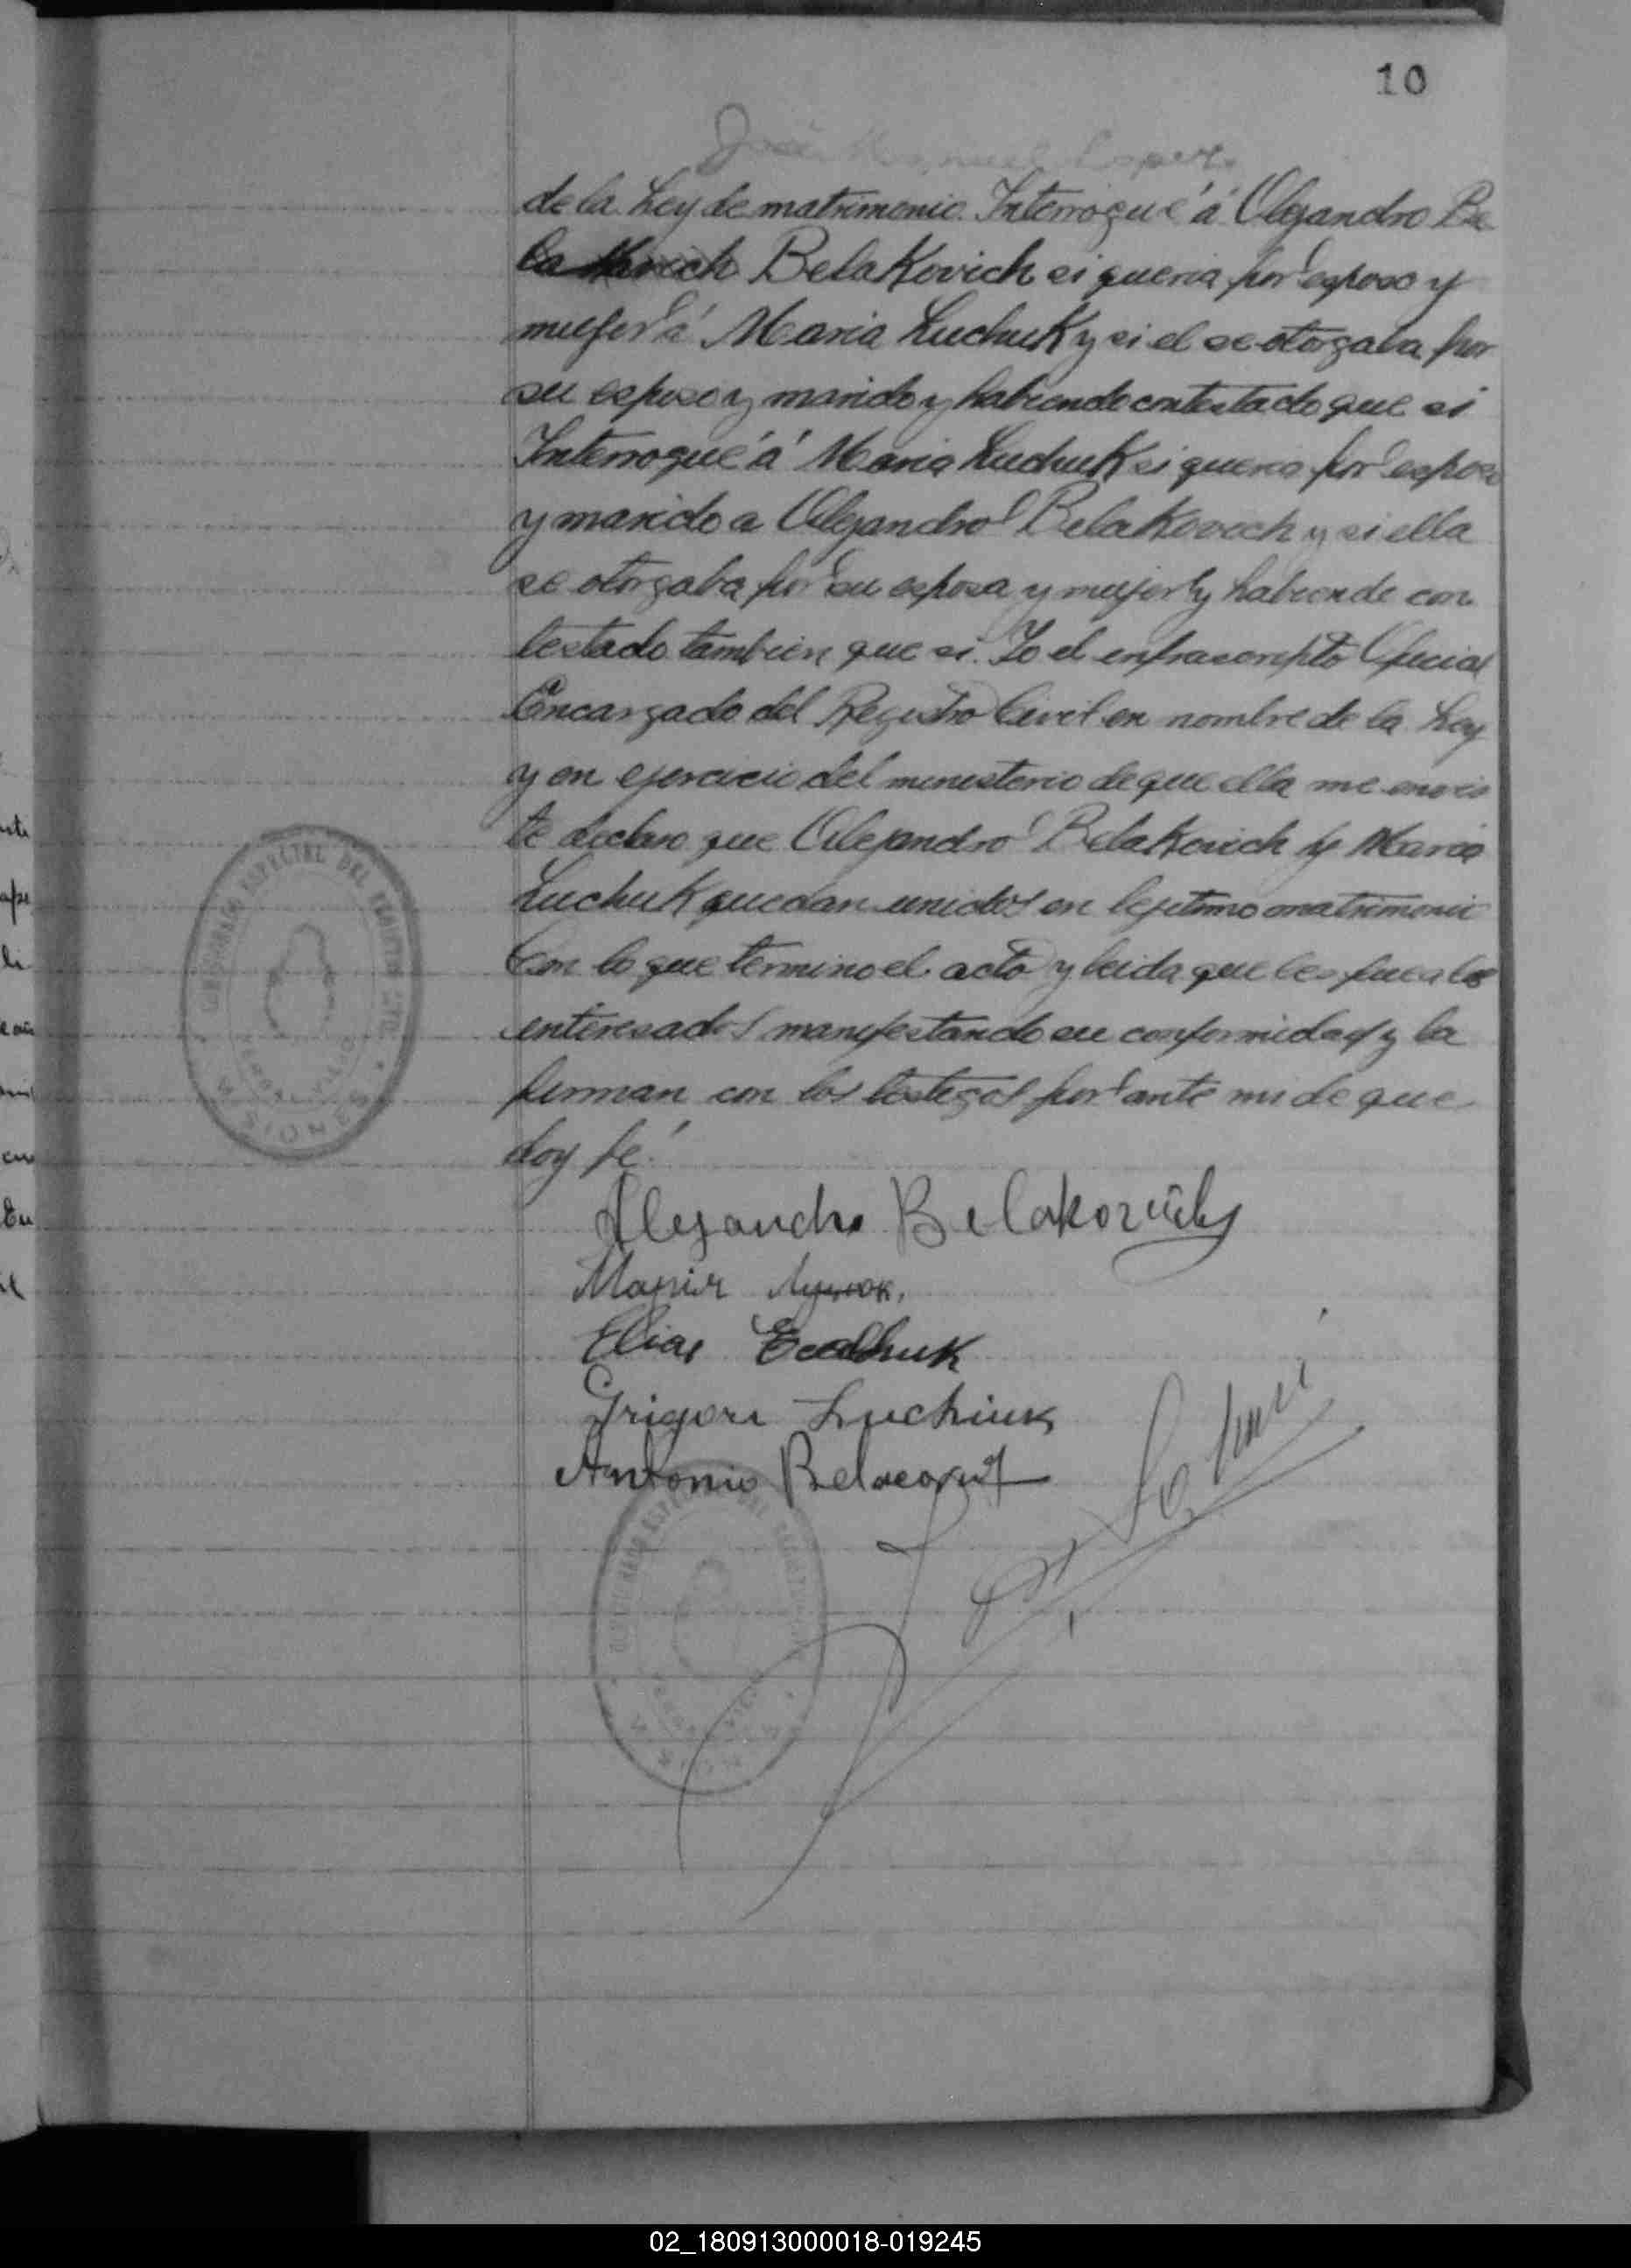 10
José Manuel Lopez
de la Ley de matrimonio. Interrogué á Alejandro Be
la Kovich BelaKovich si queria por esposo y
mujer á Maria LuchuK y si el se otorgaba por
su esposo y marido y habiendo contestado que si
Interrogué á Maria LuchuK si queria por esposo
y marido a Alejandro BelaKovich y si ella
se otorgaba por su esposa y mujer y habiendo con
testado tambien que si. Yo el infrascripto Oficial
Encargado del Registro Civil en nombre de la Ley
y en ejercicio del ministerio de que ella me envis
te declaro que Alejandro BelaKovich y Maria
LuchuK quedan unidos en lejitimo matrimonio
Con lo que termino el acto y leida que les fue a los
interesados manifestando su conformidad y la
firman con los testigos por ante mi de que
doy fé.
Alejandro Belakovich
Мария Лучюк.
Elias
Grigori Luchiuk
Antonio
MISIONES
02_180913000018-019245